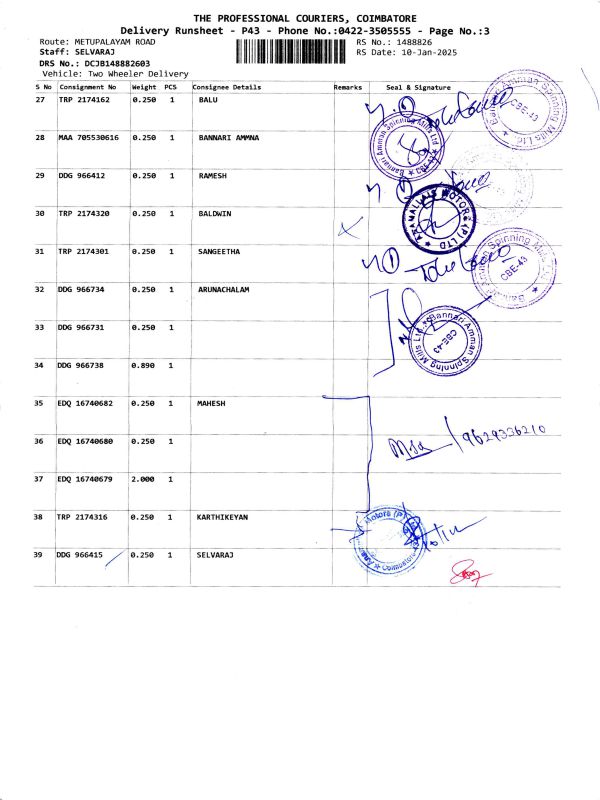 THE PROFESSIONAL COURIERS, COIMBATORE
Delivery Runsheet - P43 - Phone No.:0422-3505555 - Page No.:3
Route: METUPALAYAM ROAD RS No.: 1488826
Staff: SELVARAJ RS Date: 10-Jan-2025
DRS No.: DCJB148882603
Vehicle: Two Wheeler Delivery
S No Consignment No Weight PCS Consignee Details Remarks Seal & Signature
27 TRP 2174162 0.250 1 BALU
28 MAA 705530616 0.250 1 BANNARI AMMNA
29 DDG 966412 0.250 1 RAMESH
30 TRP 2174320 0.250 1 BALDWIN
31 TRP 2174301 0.250 1 SANGEETHA
32 DDG 966734 0.250 1 ARUNACHALAM
33 DDG 966731 0.250 1
34 DDG 966738 0.890 1
35 EDQ 16740682 0.250 1 MAHESH
36 EDQ 16740680 0.250 1
37 EDQ 16740679 2.000 1
38 TRP 2174316 0.250 1 KARTHIKEYAN
39 DDG 966415 0.250 1 SELVARAJ
Bannari Amman Spinning Mills Ltd
CBE-43
Bannari Amman Spinning Mills Ltd
CBE-43
ANAMALLAIS MOTORS (P) LTD
Bannari Amman Spinning Mills Ltd
CBE-43
Bannari Amman Spinning Mills Ltd
CBE-43
9629336210
Motors (P)
Coimbatore-43